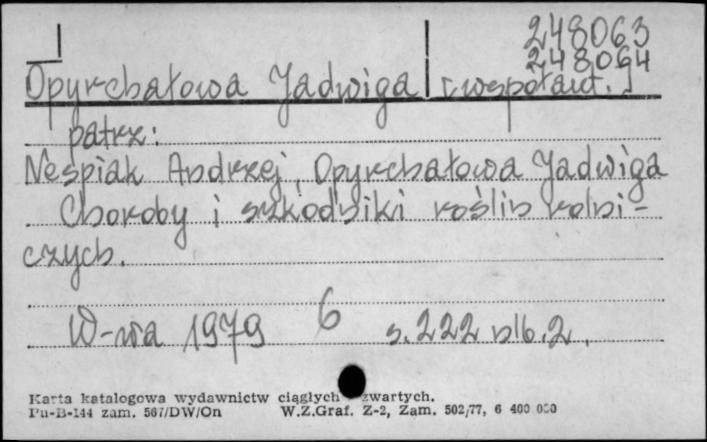 248063
248064
Opyrchałowa Jadwiga [współaut.]
patrz:
Nespiak Andrzej, Opyrchałowa Jadwiga
Choroby i szkodniki roślin rolni-
czych.
W-wa 1979 6 s. 222 nlb. 2.
Karta katalogowa wydawnictw ciągłych zwartych.
Pu-B-144 zam. 567/DW/On W.Z.Graf. Z-2, Zam. 502/77, 6 400 000